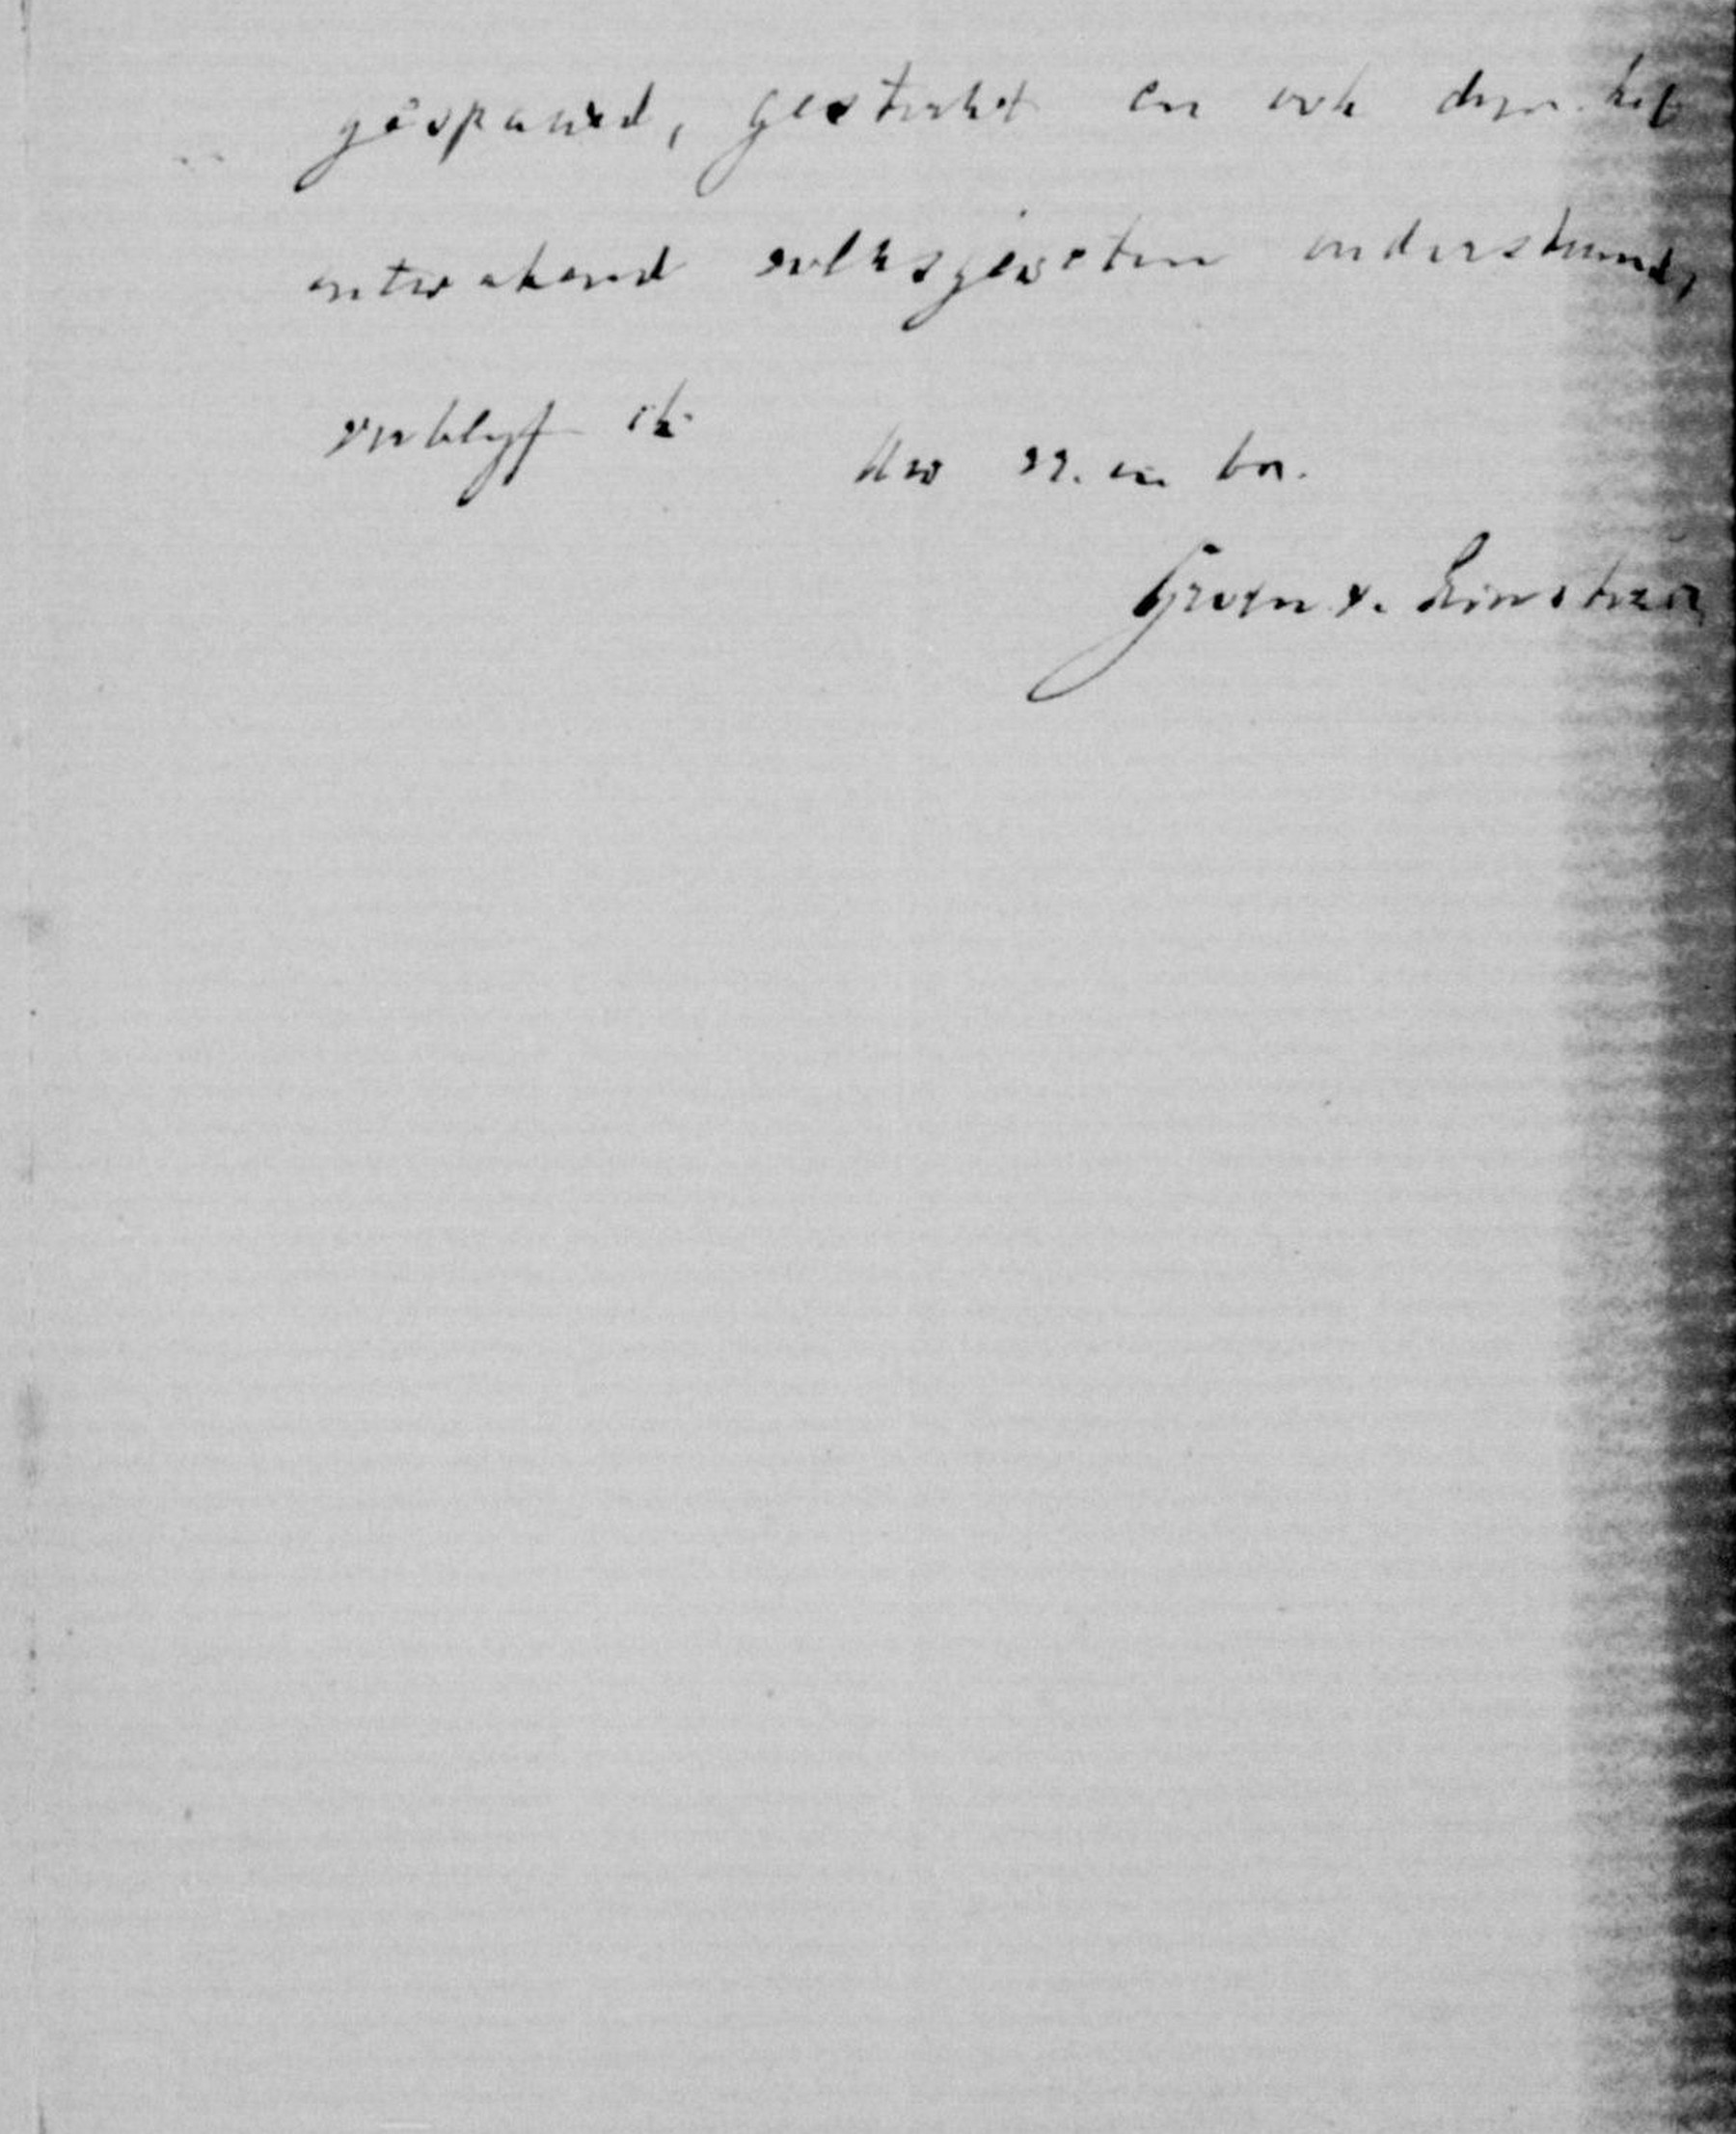 gespaard, gesterkt en ook door het
ontwakend volksgeweten ondersteund,
verblijf ik
Uw vr. en br.
Groen v. Prinsterer